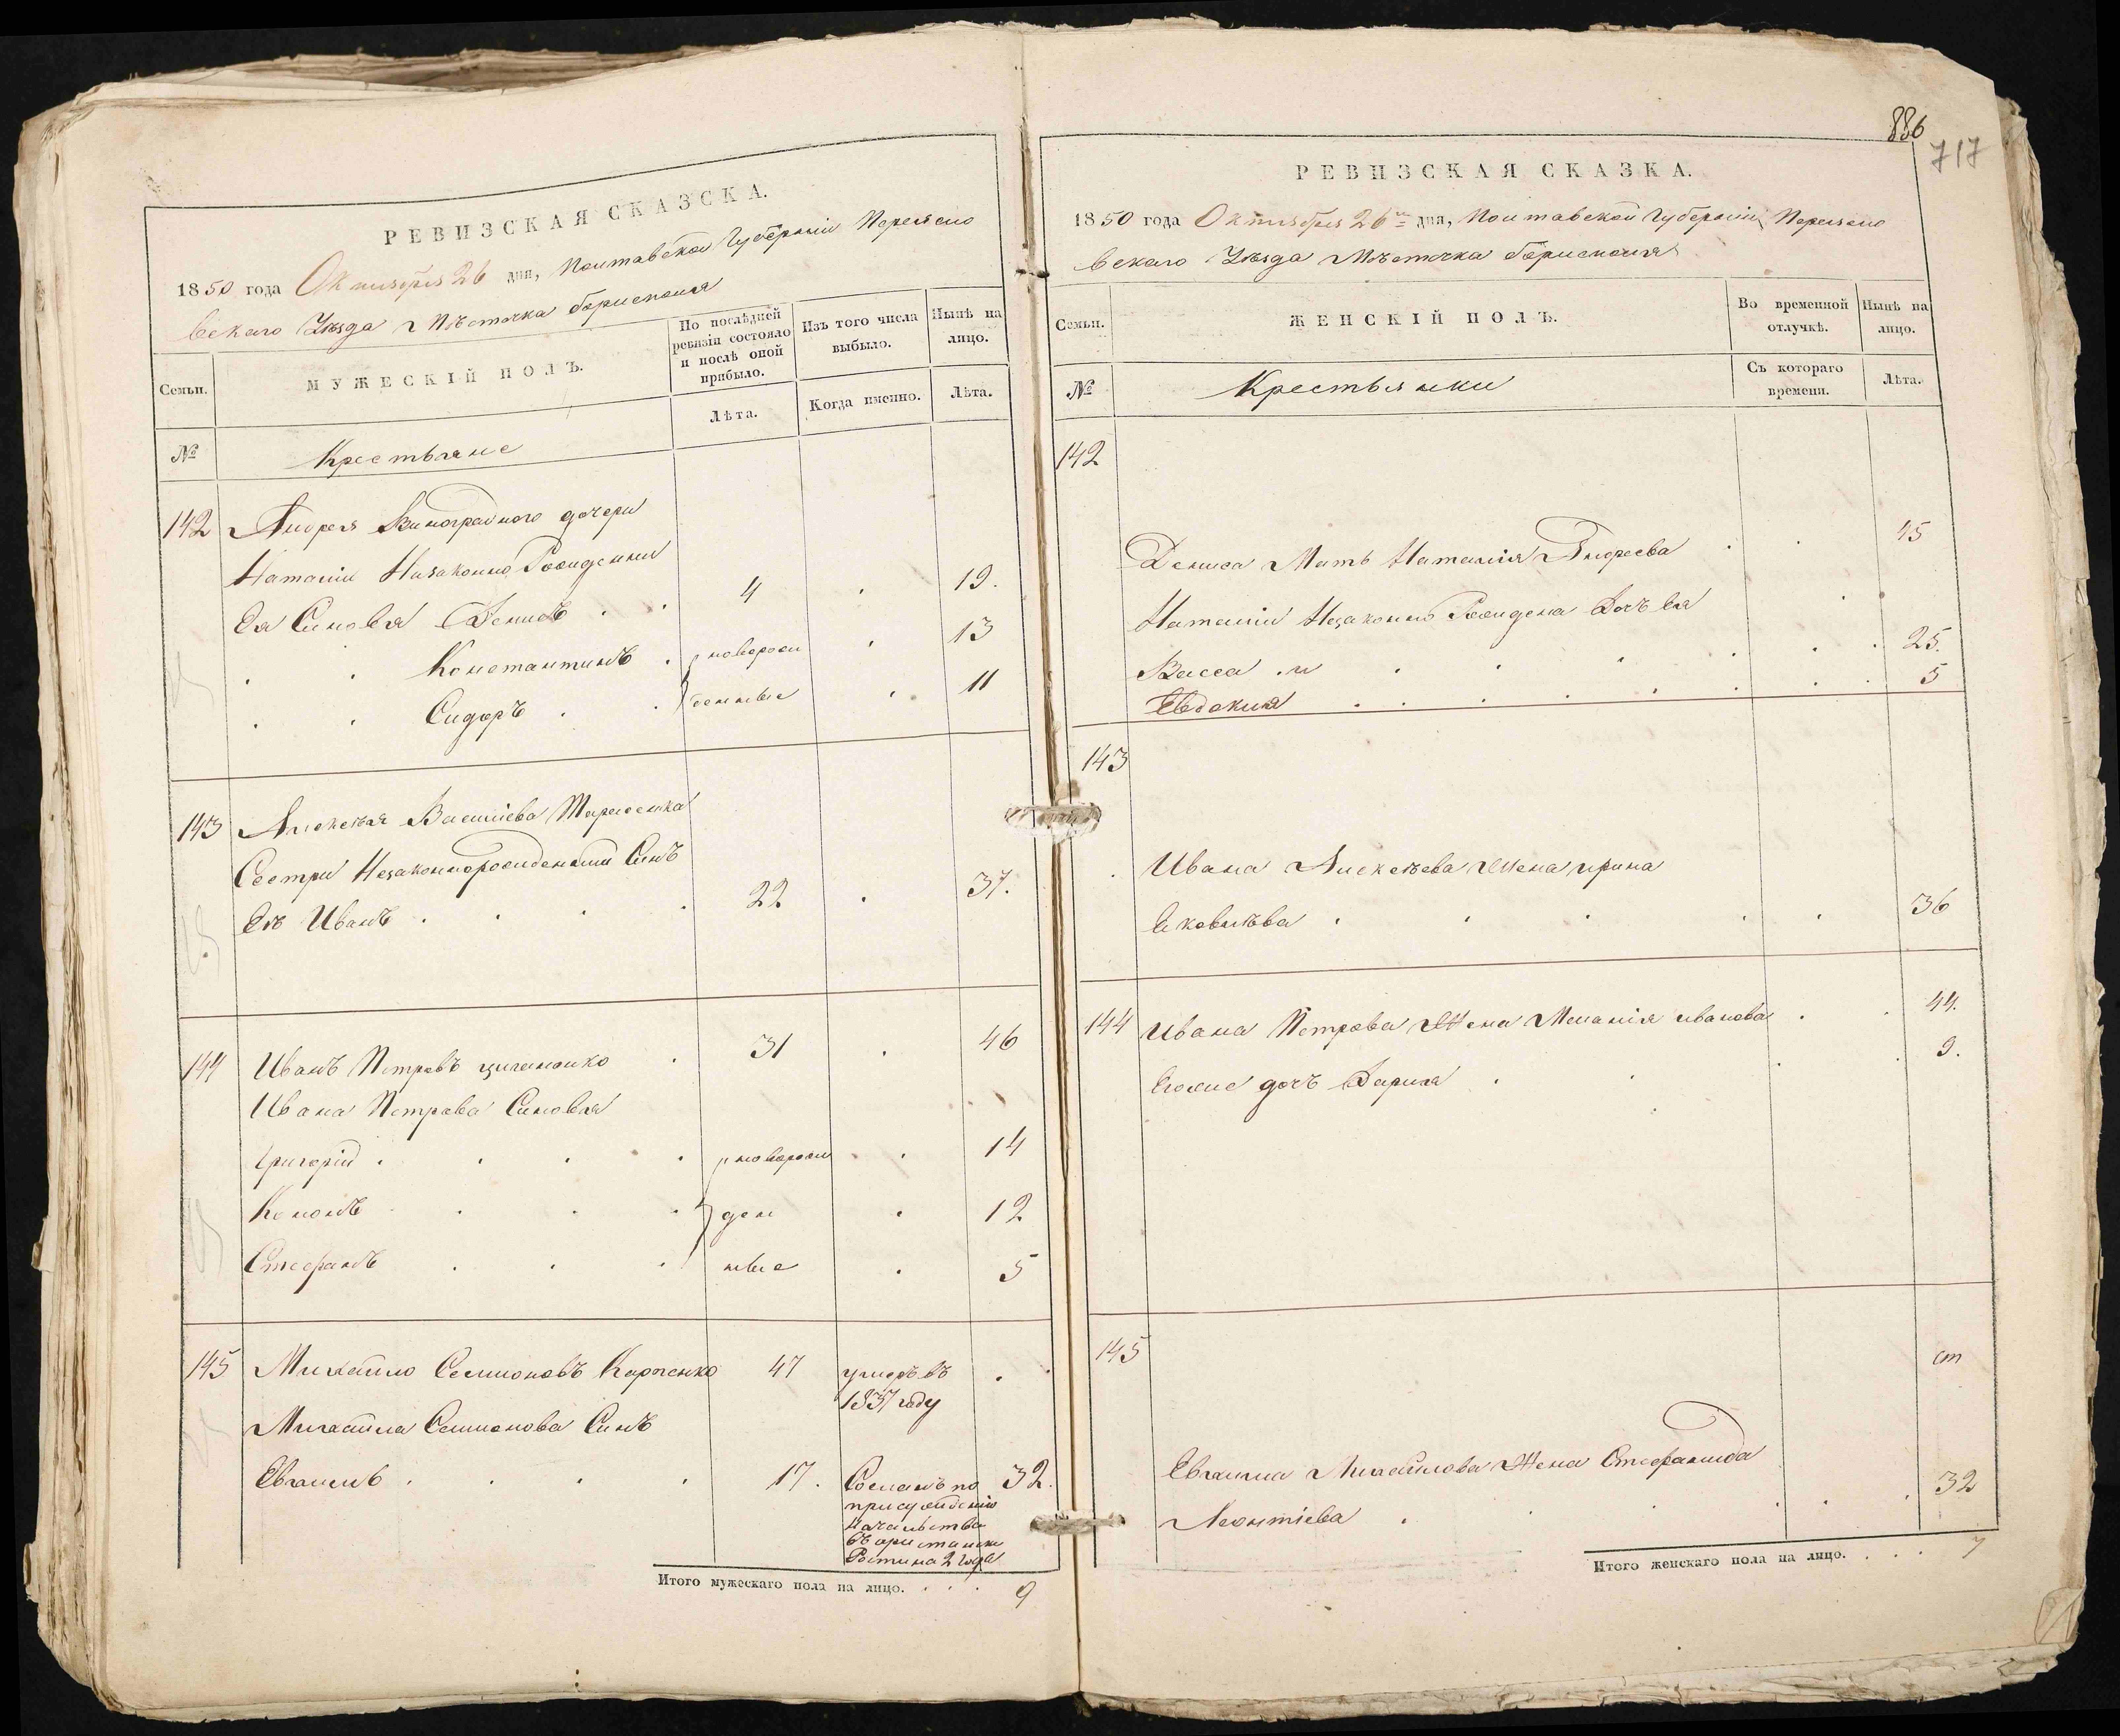 РЕВИЗСКАЯ СКАЗСКА.
1850 года Октября 26 дня, Полтавской Губерніи Переясло
вскаго Уѣзда Мѣстечка Борисполя
Семьи.
МУЖЕСКІЙ ПОЛЪ.
По послѣдней ревизіи состояло и послѣ оной прибыло.
Изъ того числа выбыло.
Нынѣ на лицо.
№
Крестьяне
Лѣта.
Когда именно.
Лѣта.
142 Андрея Виноградного дочери
Наталіи Незаконно Рожденни
Ея Синовя Денисъ 4 19.
Константинъ новорож 13
Сидоръ денные 11
143 Алексѣя Василіева Тарасенка
Сестри Незаконнорожденный Синъ
Еѣ Иванъ 22 37.
144 Иванъ Петровъ Циганенко 31 46
Ивана Петрова Синовья
Григорій новорож 14
Кононъ ден 12
Стефанъ ные 5
145 Михайло Семионовъ Карпенко 47 умеръ въ
1837 году
Михайла Семионова Синъ
Евгамъ 17. Сосланъ по 32.
присуждению
Начальства
въ аристанск
Роти на 2 года
Итого мужескаго пола на лицо. 9
886
717
РЕВИЗСКАЯ СКАЗКА.
1850 года Октября 26 дня, Полтавской Губерніи Переясло
вскаго Уѣзда Мѣстечка Борисполя
Семьи.
ЖЕНСКІЙ ПОЛЪ.
Во временной отлучкѣ.
Нынѣ на лицо.
№
Крестьянки
Съ котораго времени.
Лѣта.
142
Дениса Мать Наталія Андреева 45
Наталіи Незаконно Рождена Дочь Ея
Васса 25.
Евдокия 5
143
Ивана Алексѣева Жена Ирина
Яковлѣва 36
144 Ивана Петрова Жена Меланія Иванова 44.
Егоже дочъ Дария 9.
145
Михайлова Жена Стефанида
Леонтіева 32
Итого женскаго пола на лицо. 7